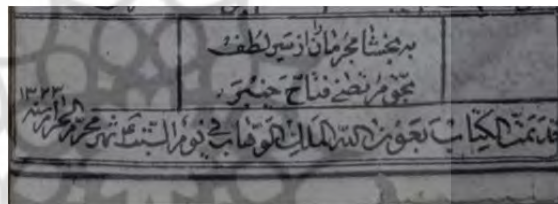 به بخشا مجرمان از سیر لطف
بحق مرتضے فتاح خیبر
قد تمت الکتاب بعون الله الملک الوهاب فی یوم السبت شهر محرم الحرام سنه ۱۳۲۳